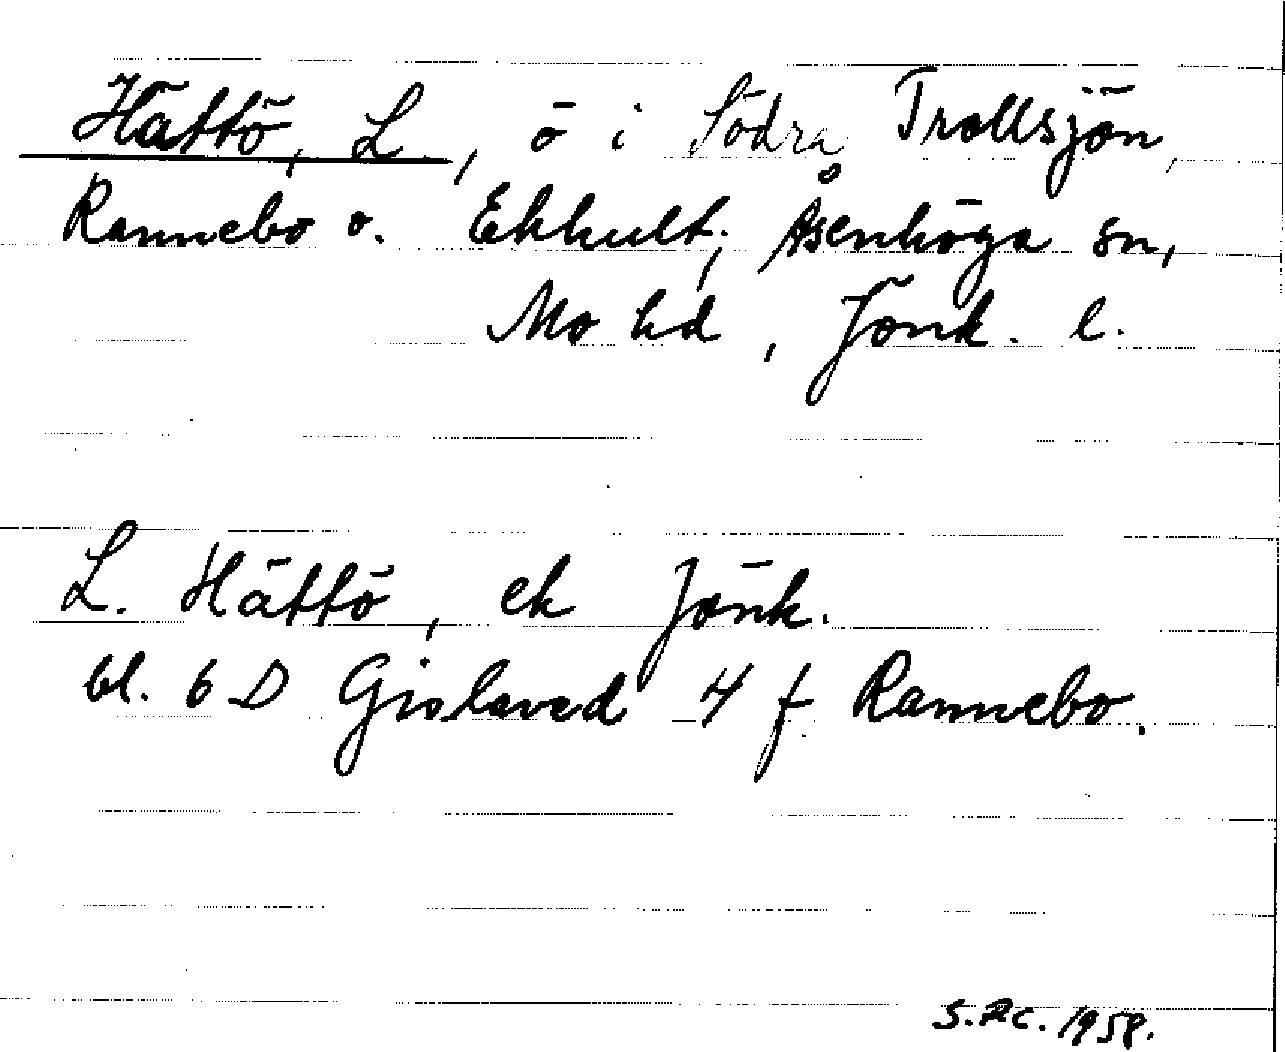 Hättö, L., ö i Södra Trollsjön,
Rannebo o. Ekhult; Åsenhöga sn,
Mo hd, Jönk. l.
L. Hättö, ek Jönk.
bl. 6 D Gislaved 4 f Rannebo.
1958.